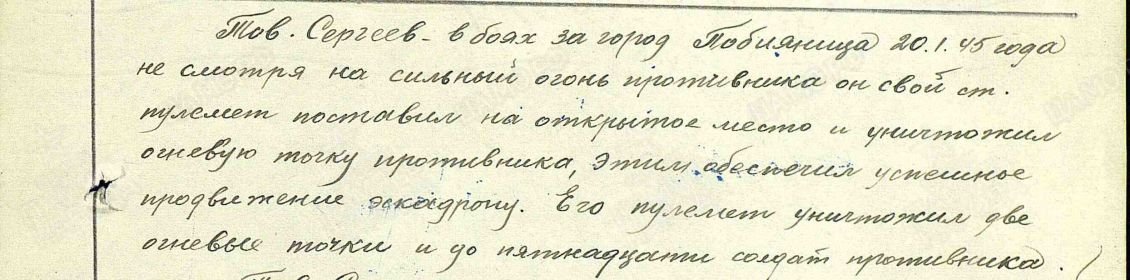 Тов. Сергеев - в боях за город Побияница 20.1.45 года
не смотря на сильный огонь противника он свой ст.
пулемет поставил на открытое место и уничтожил
огневую точку противника, этим обеспечил успешное
продвижение эскадрону. Его пулемет уничтожил две
огневые точки и до пятнадцати солдат противника.